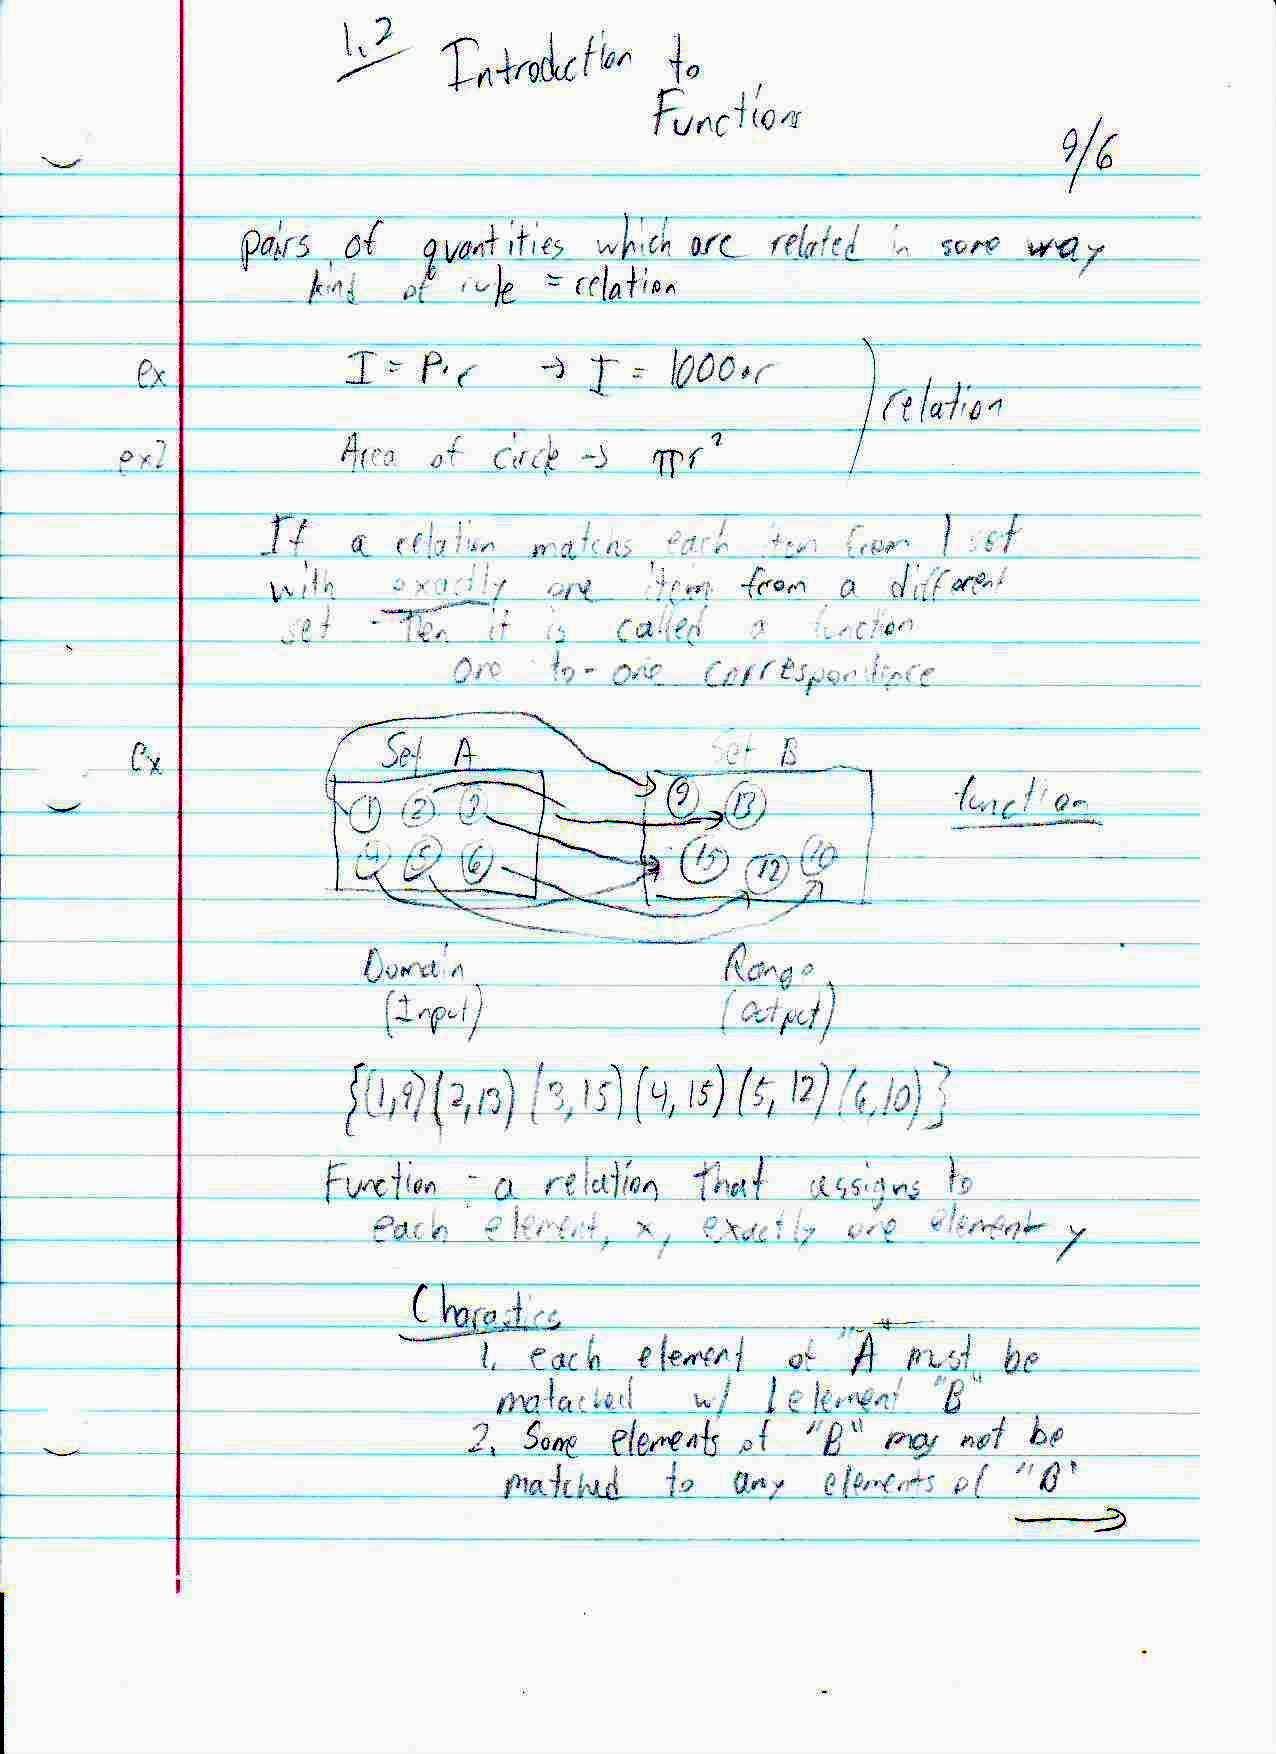 1.2 Introduction to
Functions
9/6
pairs of quantities which are related in some way
kind of rule = relation
ex I = P·r → I = 1000·r
relation
ex2 Area of circle → πr²
If a relation matchs each item from 1 set
with exactly one item from a different
set - Then it is called a function
one-to-one correspondence
ex Set A Set B
1 2 3 9 13 function
4 5 6 15 12 10
Domain Range
(Input) (output)
{(1,9)(2,13)(3,15)(4,15)(5,12)(6,10)}
Function - a relation that assigns to
each element, x, exactly one element y
Charastics
1. each element of "A" must be
matached w/ 1 element "B"
2. Some elements of "B" may not be
matched to any elements of "B"